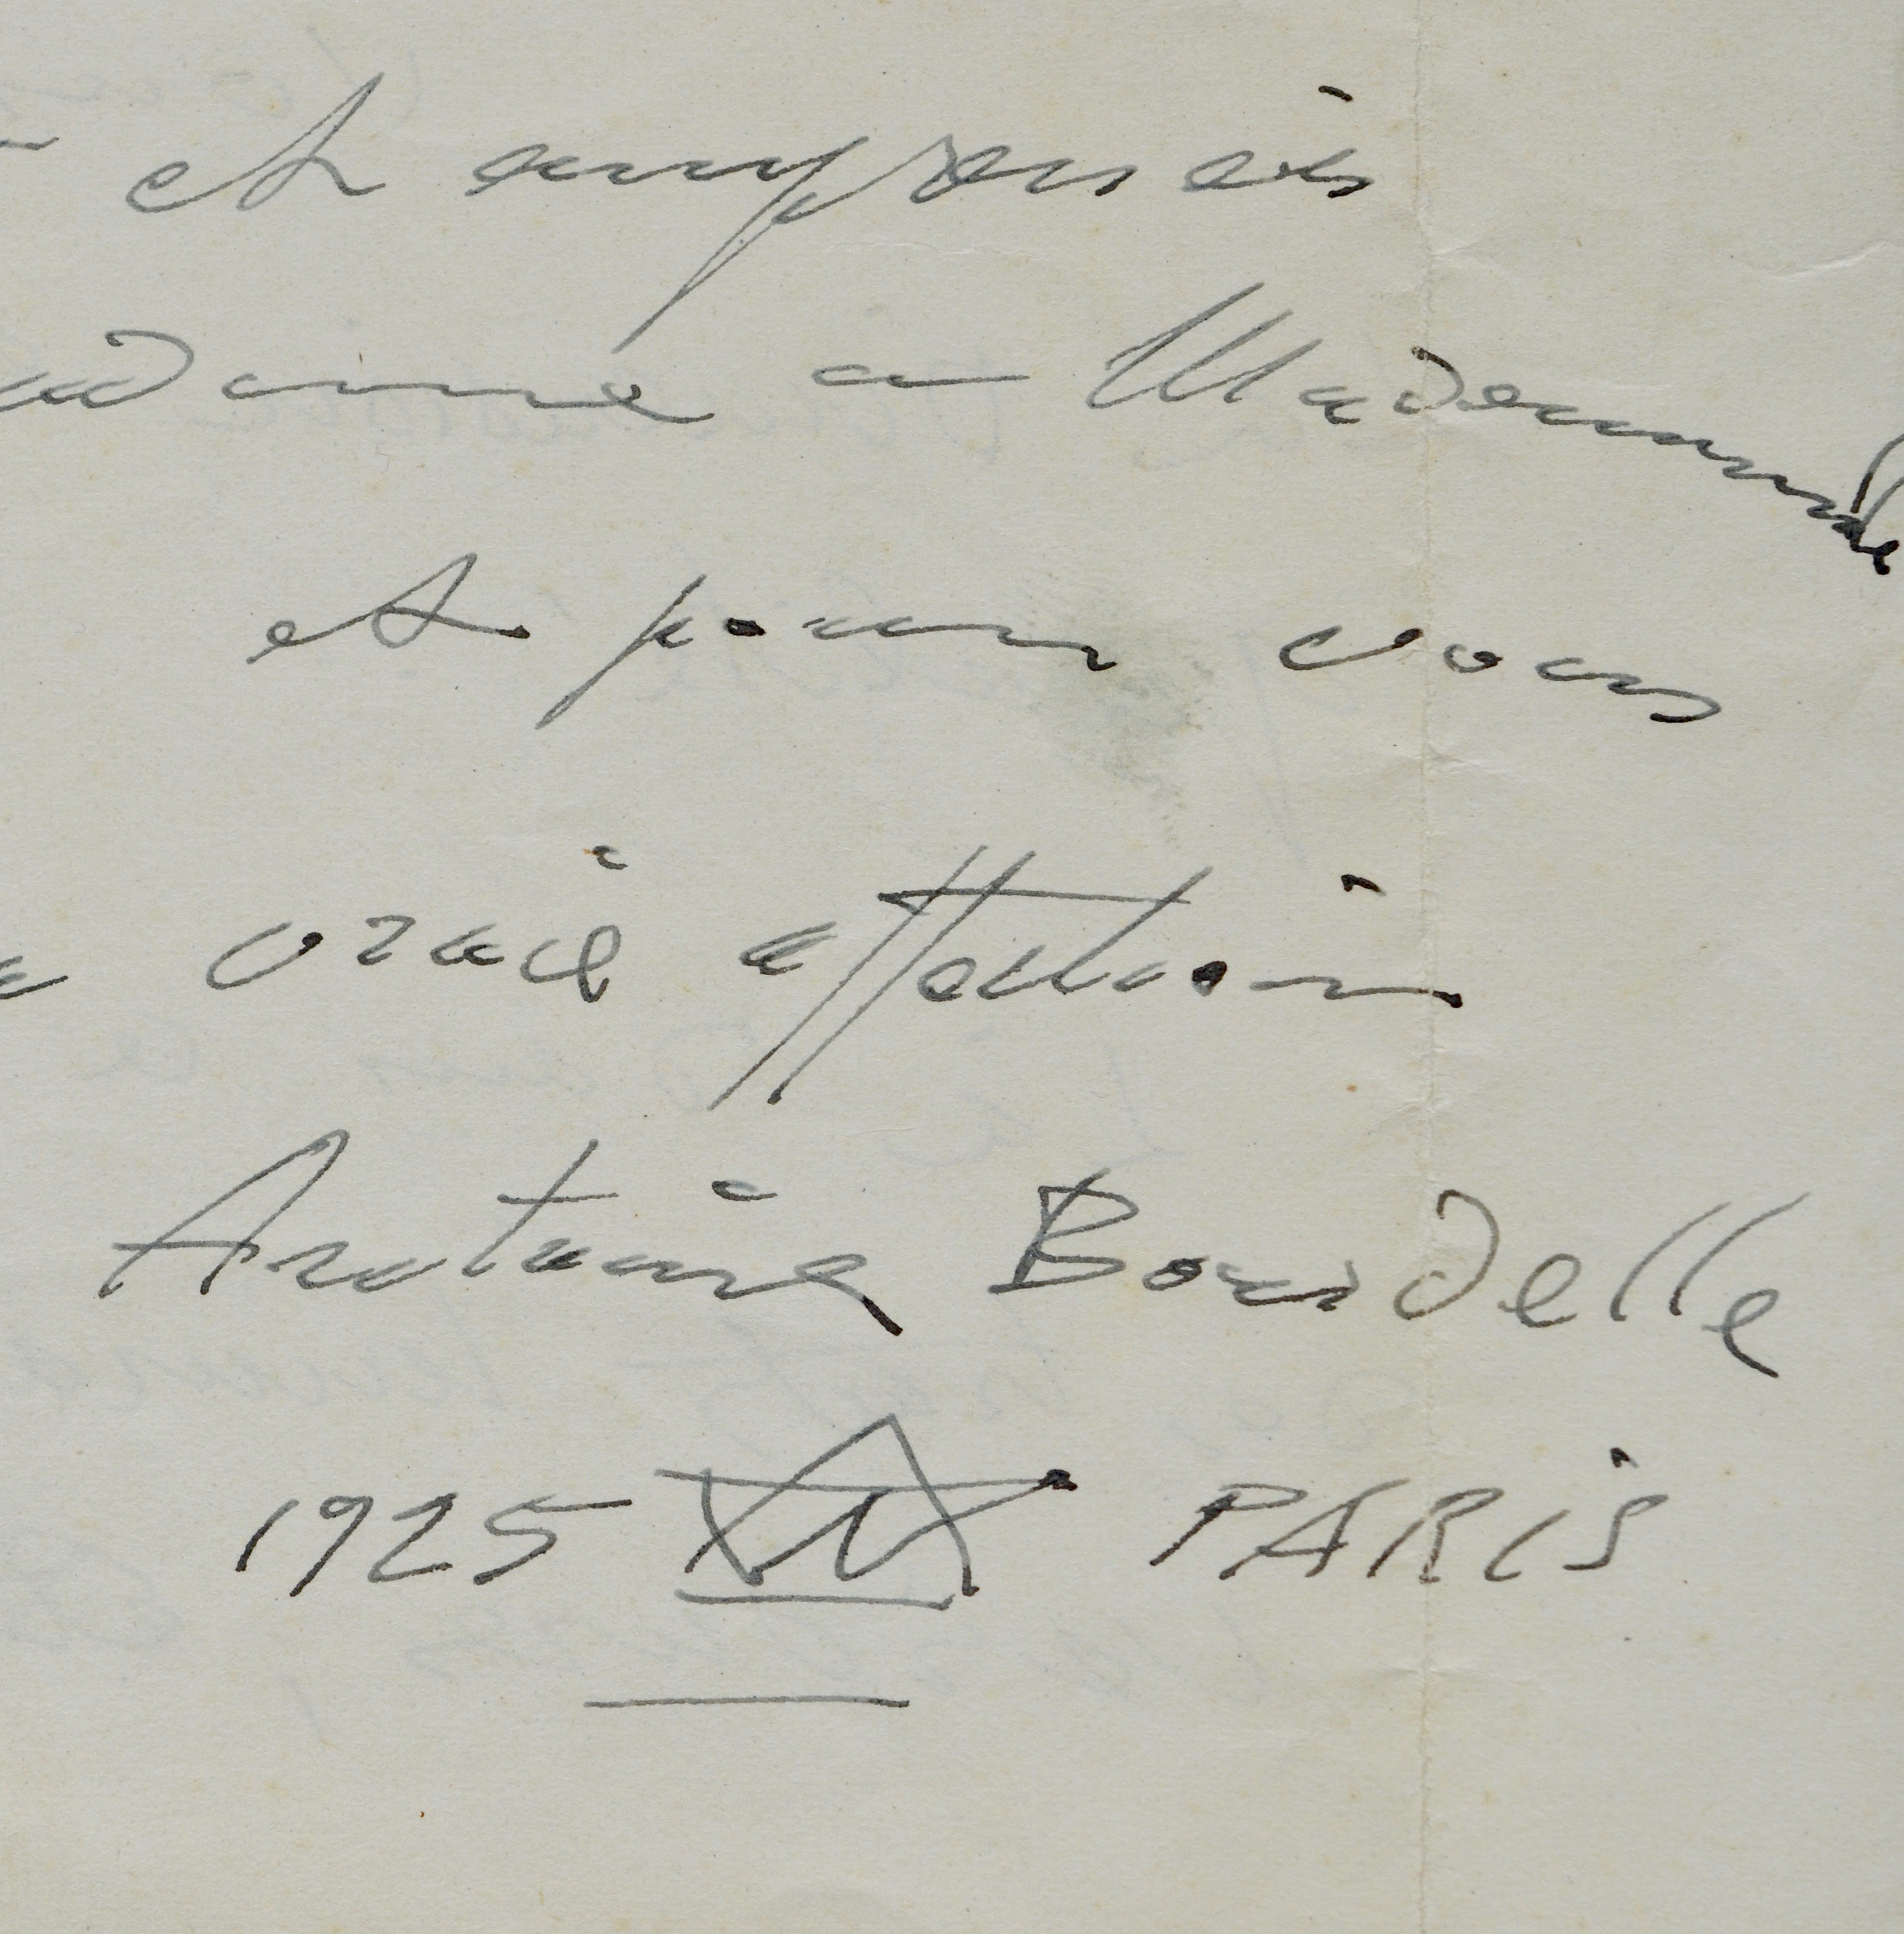 et empressés
a Mademoiselle
et pour vous
vraie affection
Antoine Bourdelle
1925 PARIS